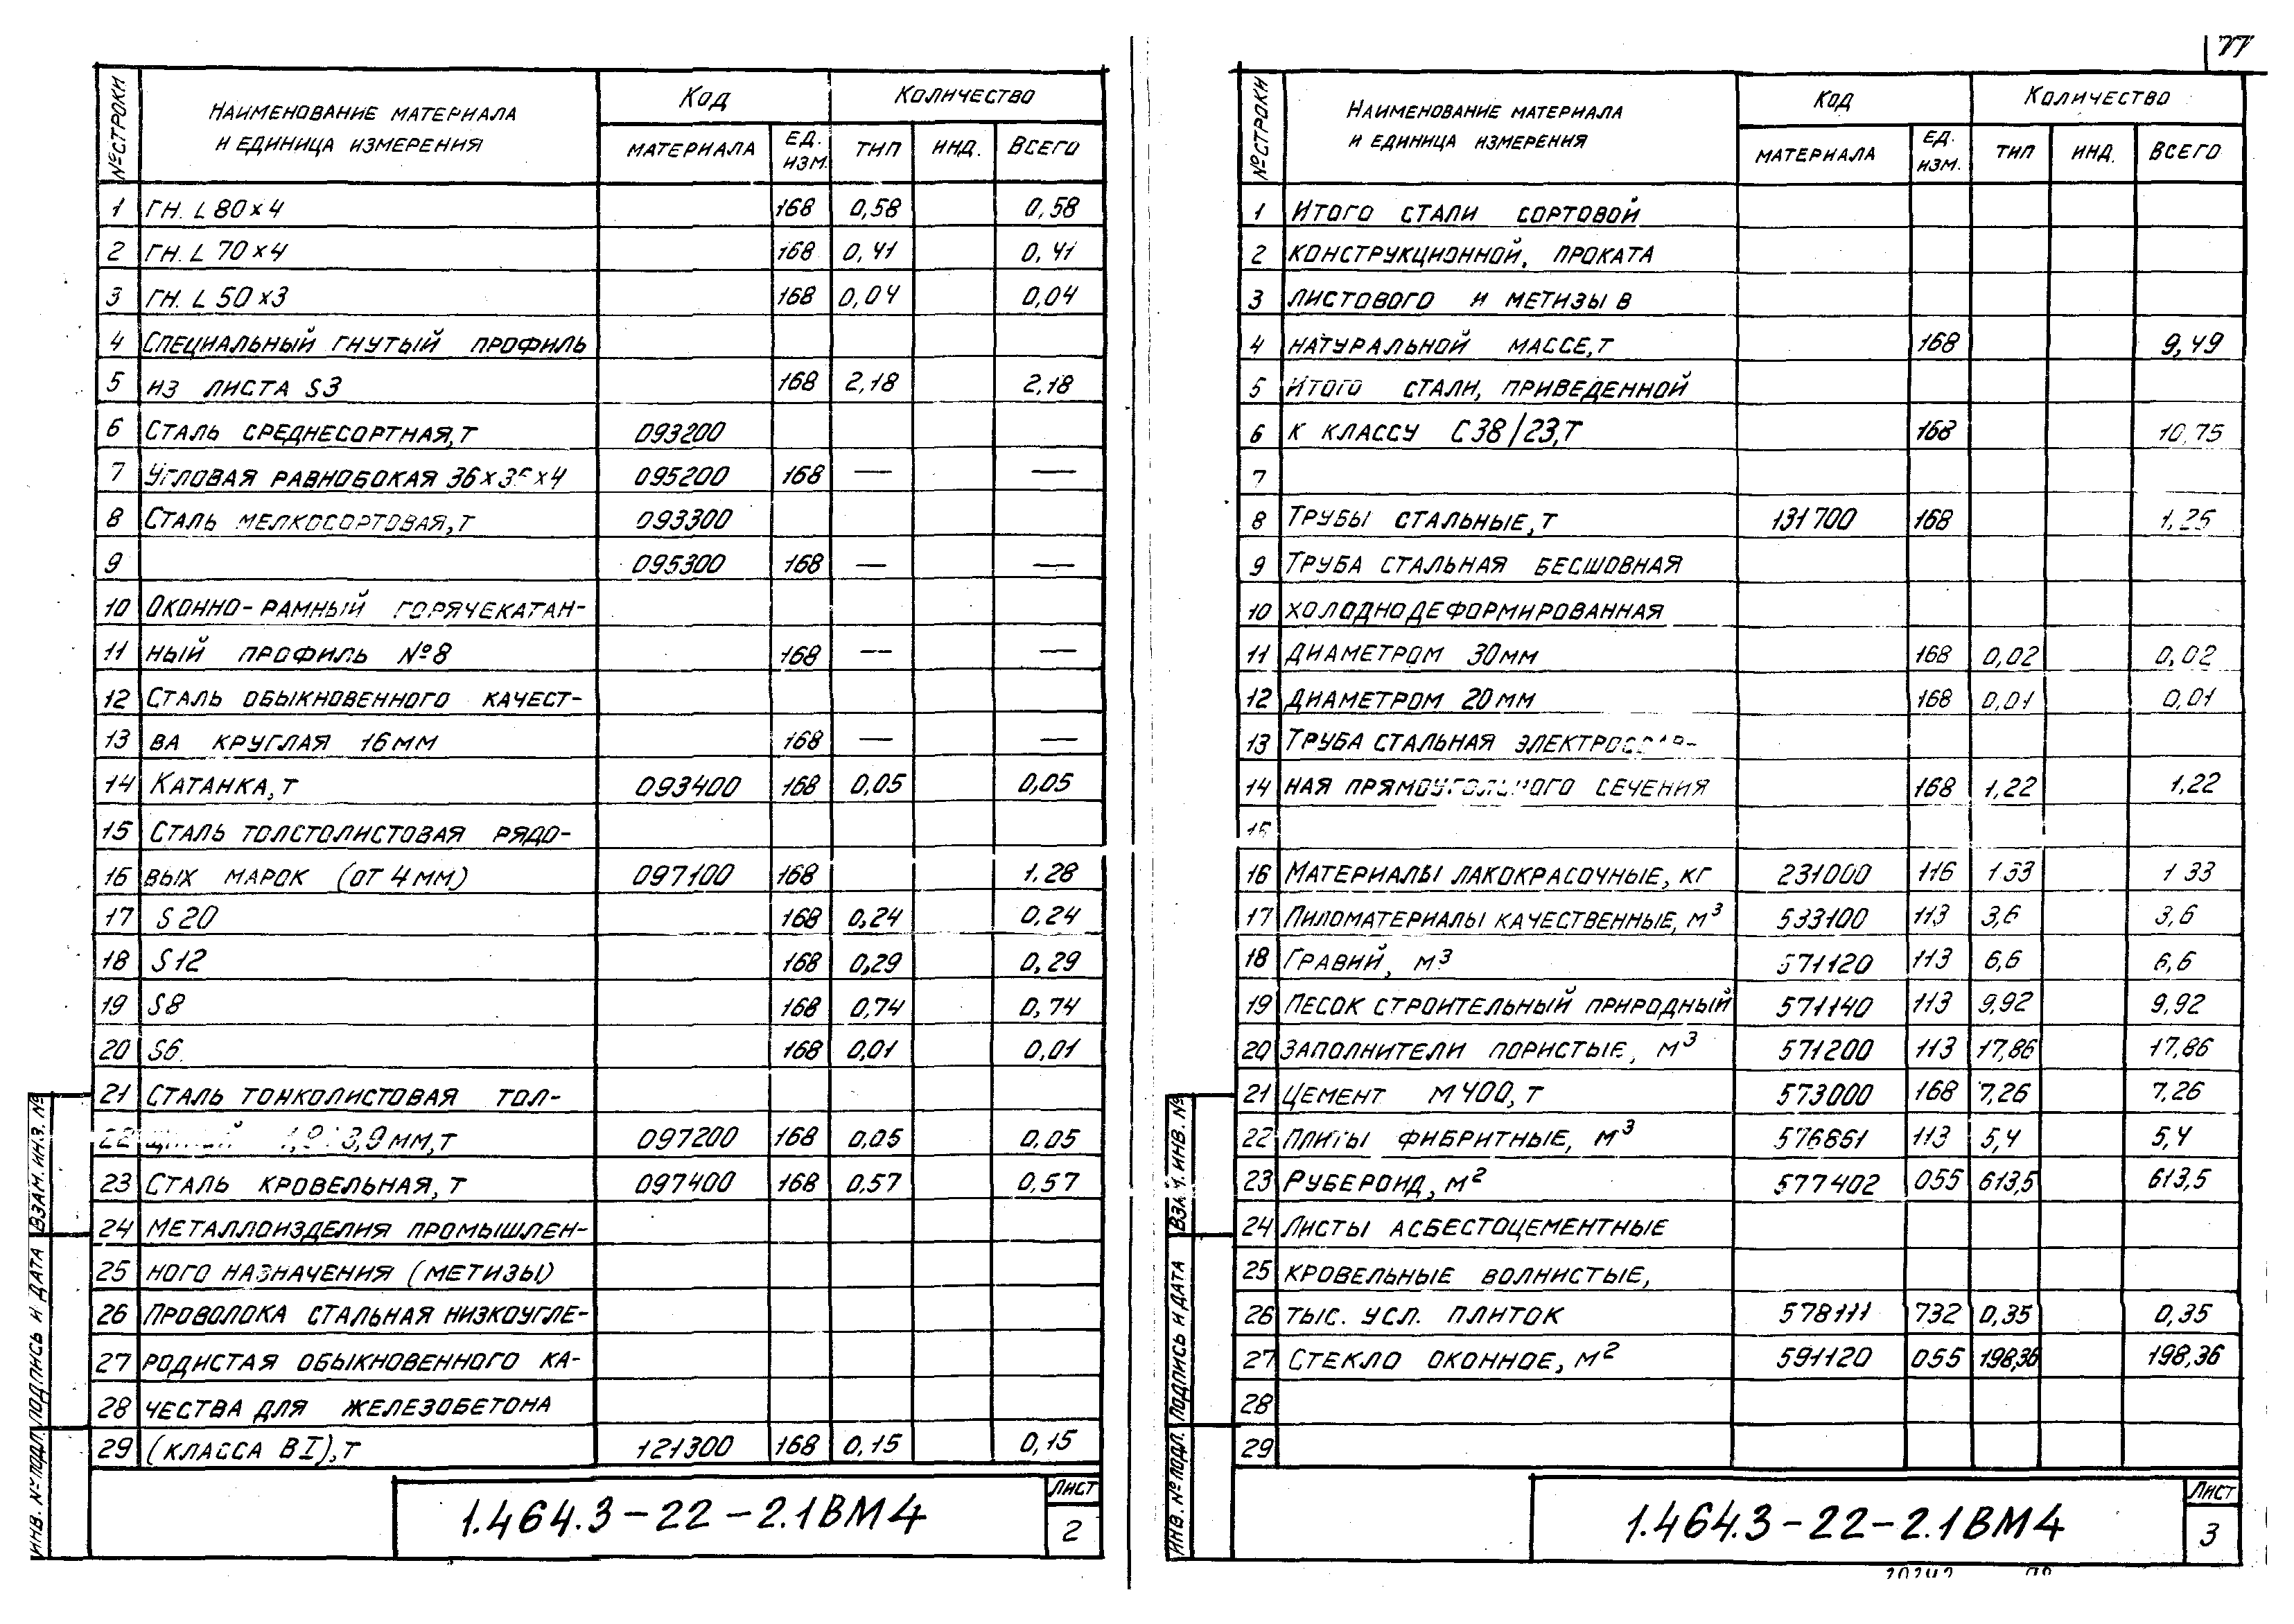 77
№ СТРОКИ НАИМЕНОВАНИЕ МАТЕРИАЛА И ЕДИНИЦА ИЗМЕРЕНИЯ КОД КОЛИЧЕСТВО
МАТЕРИАЛА ЕД. ИЗМ. ТИП ИНД. ВСЕГО
1 ГН. L 80×4 168 0,58 0,58
2 ГН. L 70×4 168 0,41 0,41
3 ГН. L 50×3 168 0,04 0,04
4 СПЕЦИАЛЬНЫЙ ГНУТЫЙ ПРОФИЛЬ
5 ИЗ ЛИСТА S3 168 2,18 2,18
6 СТАЛЬ СРЕДНЕСОРТНАЯ, Т 093200
7 УГЛОВАЯ РАВНОБОКАЯ 36×36×4 095200 168 — —
8 СТАЛЬ МЕЛКОСОРТОВАЯ, Т 093300
9 095300 168 — —
10 ОКОННО-РАМНЫЙ ГОРЯЧЕКАТАН-
11 НЫЙ ПРОФИЛЬ №8 168 — —
12 СТАЛЬ ОБЫКНОВЕННОГО КАЧЕСТ-
13 ВА КРУГЛАЯ 16ММ 168 — —
14 КАТАНКА, Т 093400 168 0,05 0,05
15 СТАЛЬ ТОЛСТОЛИСТОВАЯ РЯДО-
16 ВЫХ МАРОК (ОТ 4ММ) 097100 168 1.28
17 S20 168 0,24 0,24
18 S12 168 0,29 0,29
19 S8 168 0,74 0,74
20 S6 168 0,01 0,01
21 СТАЛЬ ТОНКОЛИСТОВАЯ ТОЛ-
22 3,9 ММ, Т 097200 168 0,05 0,05
23 СТАЛЬ КРОВЕЛЬНАЯ, Т 097400 168 0,57 0,57
24 МЕТАЛЛОИЗДЕЛИЯ ПРОМЫШЛЕН-
25 НОГО НАЗНАЧЕНИЯ (МЕТИЗЫ)
26 ПРОВОЛОКА СТАЛЬНАЯ НИЗКОУГЛЕ-
27 РОДИСТАЯ ОБЫКНОВЕННОГО КА-
28 ЧЕСТВА ДЛЯ ЖЕЛЕЗОБЕТОНА
29 (КЛАССА ВI), Т 121300 168 0,15 0,15
ИНВ. № ПОДЛ. ПОДПИСЬ И ДАТА ВЗАМ. ИНВ. №
1.464.3-22-2.1ВМ4
ЛИСТ
2
№ СТРОКИ НАИМЕНОВАНИЕ МАТЕРИАЛА И ЕДИНИЦА ИЗМЕРЕНИЯ КОД КОЛИЧЕСТВО
МАТЕРИАЛА ЕД. ИЗМ. ТИП ИНД. ВСЕГО
1 ИТОГО СТАЛИ СОРТОВОЙ
2 КОНСТРУКЦИОННОЙ, ПРОКАТА
3 ЛИСТОВОГО И МЕТИЗЫ В
4 НАТУРАЛЬНОЙ МАССЕ, Т 168 9,49
5 ИТОГО СТАЛИ, ПРИВЕДЕННОЙ
6 К КЛАССУ С38/23, Т 168 10,75
7
8 ТРУБЫ СТАЛЬНЫЕ, Т 131700 168 1,25
9 ТРУБА СТАЛЬНАЯ БЕСШОВНАЯ
10 ХОЛОДНОДЕФОРМИРОВАННАЯ
11 ДИАМЕТРОМ 30ММ 168 0,02 0,02
12 ДИАМЕТРОМ 20ММ 168 0,01 0,01
13 ТРУБА СТАЛЬНАЯ ЭЛЕКТРОСВАР-
14 НАЯ ПРЯМОУГОЛЬНОГО СЕЧЕНИЯ 168 1,22 1,22
15
16 МАТЕРИАЛЫ ЛАКОКРАСОЧНЫЕ, КГ 231000 116 1 33 1 33
17 ПИЛОМАТЕРИАЛЫ КАЧЕСТВЕННЫЕ, М³ 533100 113 3,6 3,6
18 ГРАВИЙ, М³ 571120 113 6,6 6,6
19 ПЕСОК СТРОИТЕЛЬНЫЙ ПРИРОДНЫЙ 571140 113 9,92 9,92
20 ЗАПОЛНИТЕЛИ ПОРИСТЫЕ, М³ 571200 113 17,86 17,86
21 ЦЕМЕНТ М400, Т 573000 168 7,26 7,26
22 ПЛИТЫ ФИБРИТНЫЕ, М³ 576861 113 5,4 5,4
23 РУБЕРОИД, М² 577402 055 613,5 613,5
24 ЛИСТЫ АСБЕСТОЦЕМЕНТНЫЕ
25 КРОВЕЛЬНЫЕ ВОЛНИСТЫЕ,
26 ТЫС. УСЛ. ПЛИТОК 578111 732 0,35 0,35
27 СТЕКЛО ОКОННОЕ, М² 591120 055 198,36 198,36
28
29
ИНВ. № ПОДЛ. ПОДПИСЬ И ДАТА ВЗАМ. ИНВ. №
1.464.3-22-2.1ВМ4
ЛИСТ
3